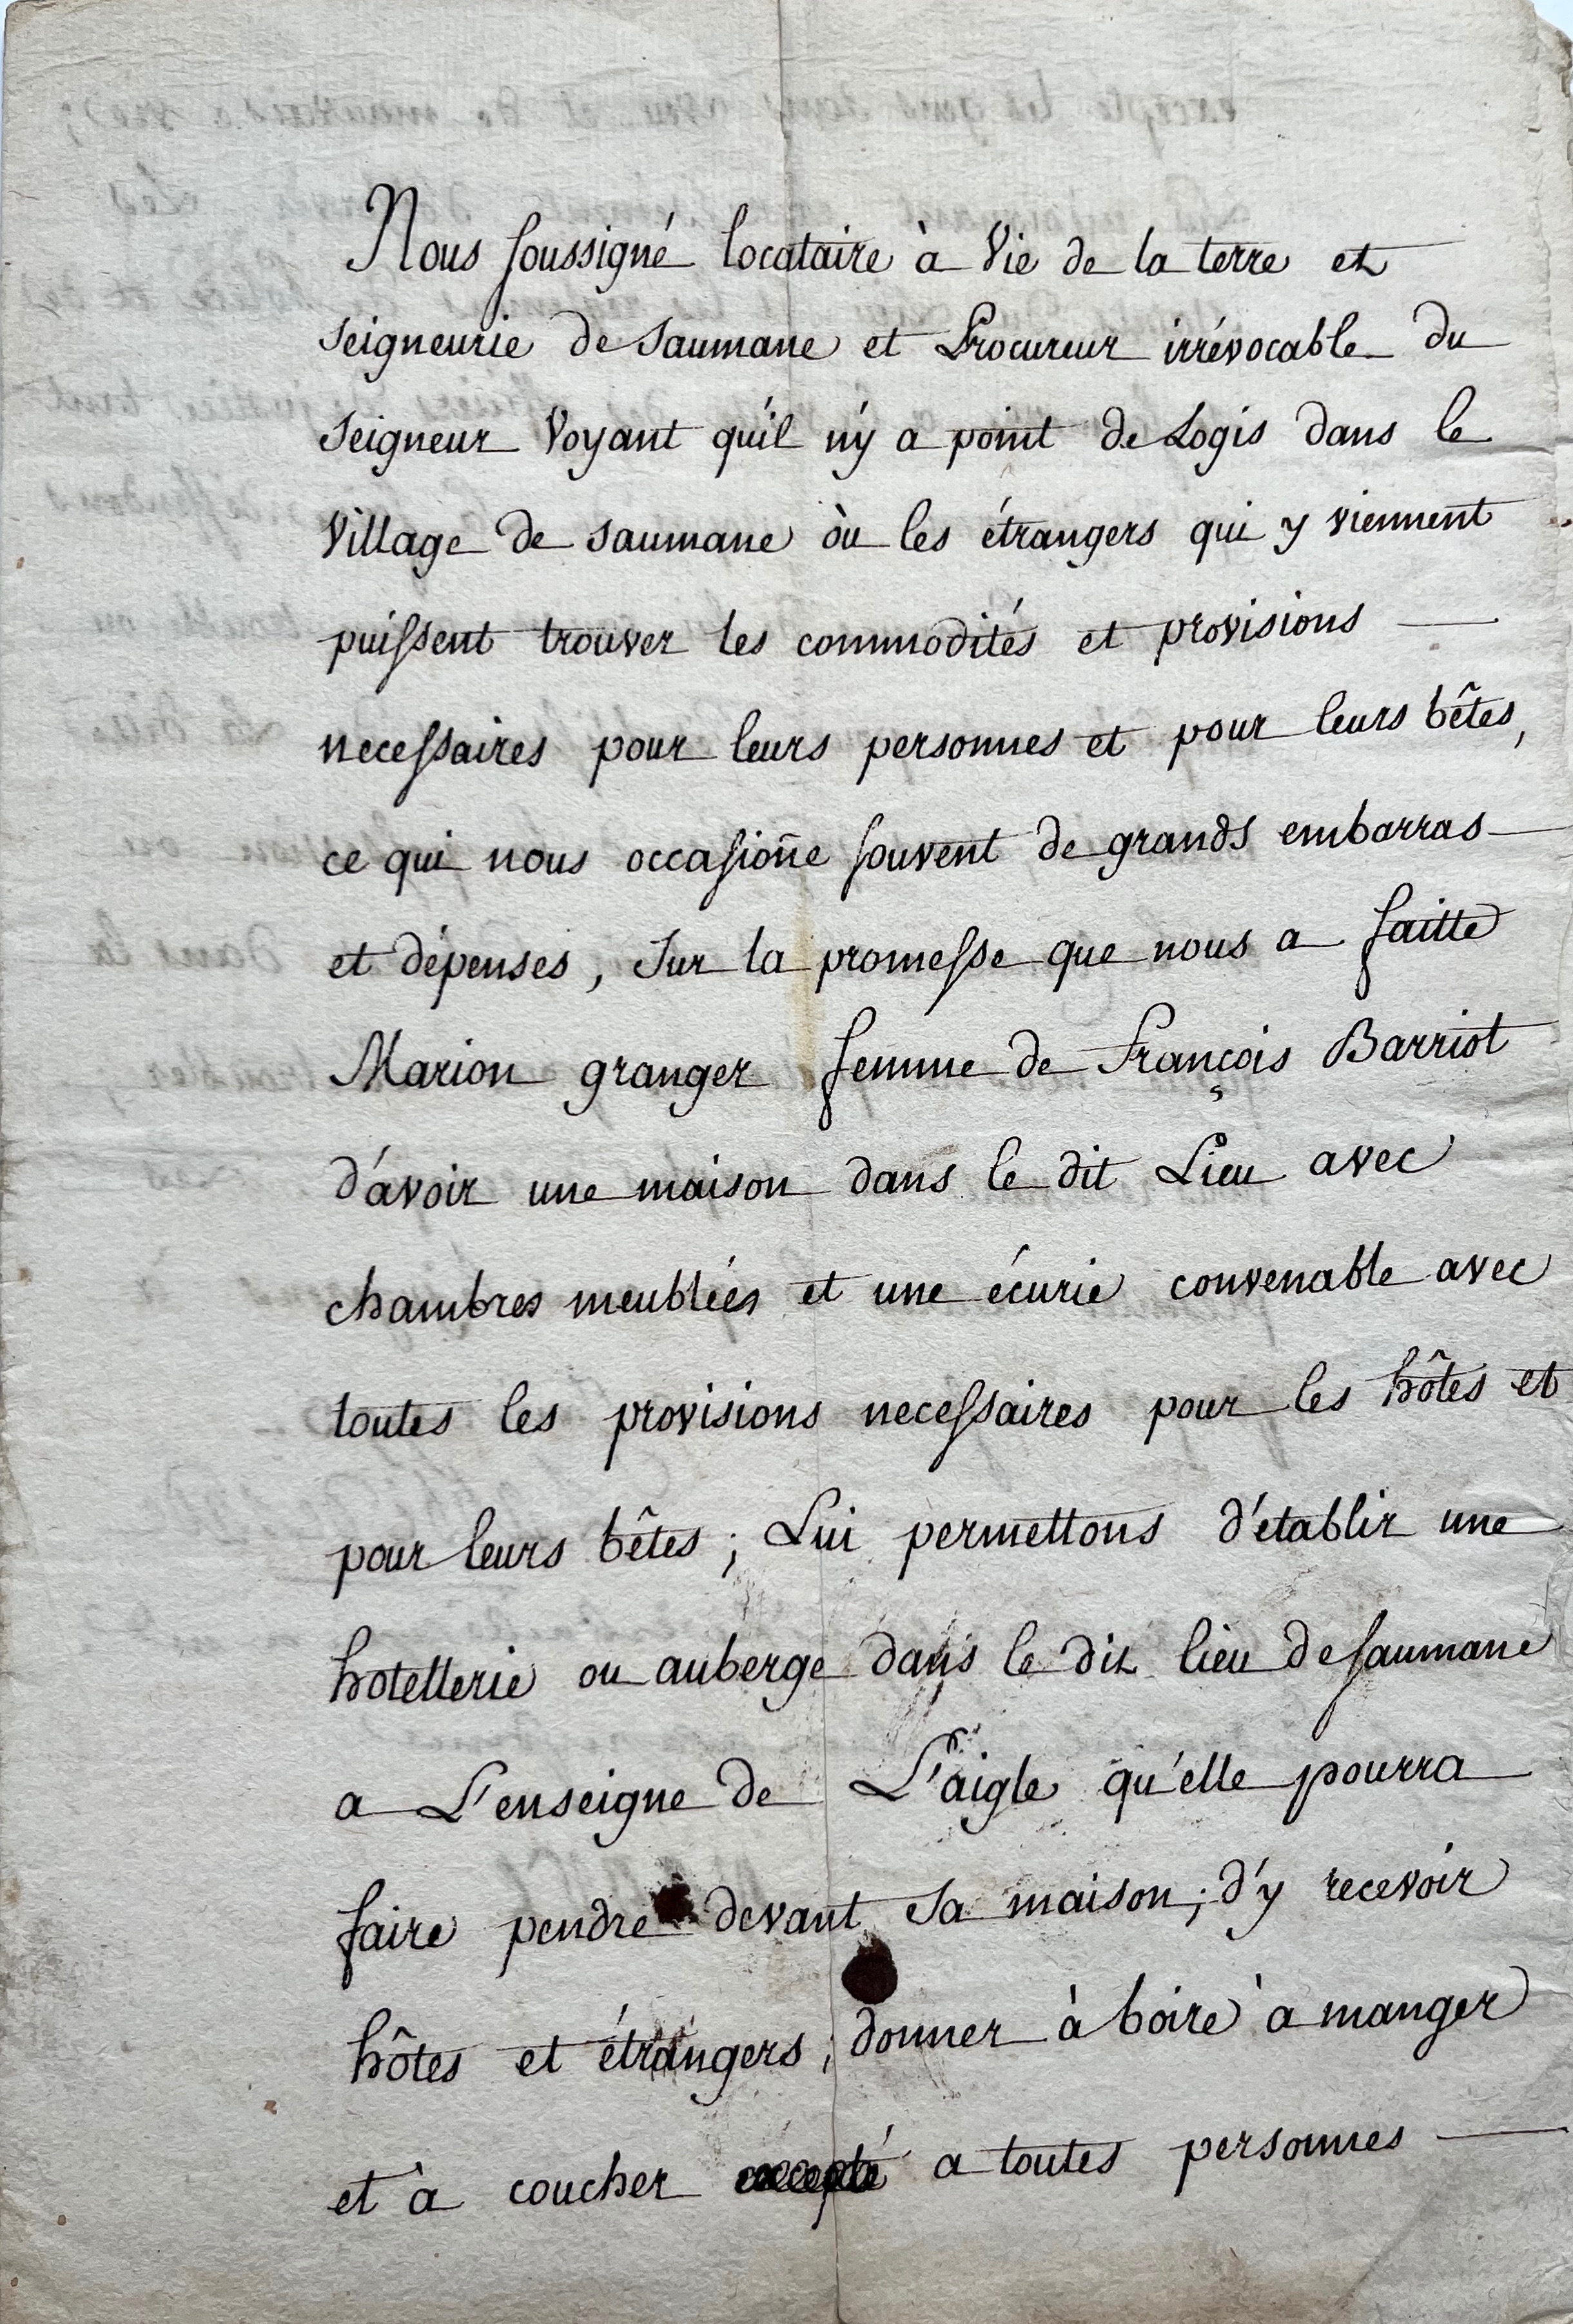 Nous soussigné locataire à Vie de la terre et
seigneurie de Saumane et Procureur irrévocable du
seigneur Voyant qu'il n'y a point de Logis dans le
Village de saumane où les étrangers qui y viennent
puissent trouver les commodités et provisions —
necessaires pour leurs personnes et pour leurs bêtes,
ce qui nous occasioñe souvent de grands embarras
et dépenses, sur la promesse que nous a faitte
Marion granger femme de François Barriot
d'avoir une maison dans le dit Lieu avec
chambres meublées et une écurie convenable avec
toutes les provisions necessaires pour les hôtes et
pour leurs bêtes ; Lui permettons d'établir une
hotellerie ou auberge dans le dit lieu de saumane
a L'enseigne de L'aigle qu'elle pourra
faire pendre devant sa maison ; d'y recevoir
hôtes et étrangers ; donner à boire à manger
et à coucher excepté a toutes personnes —